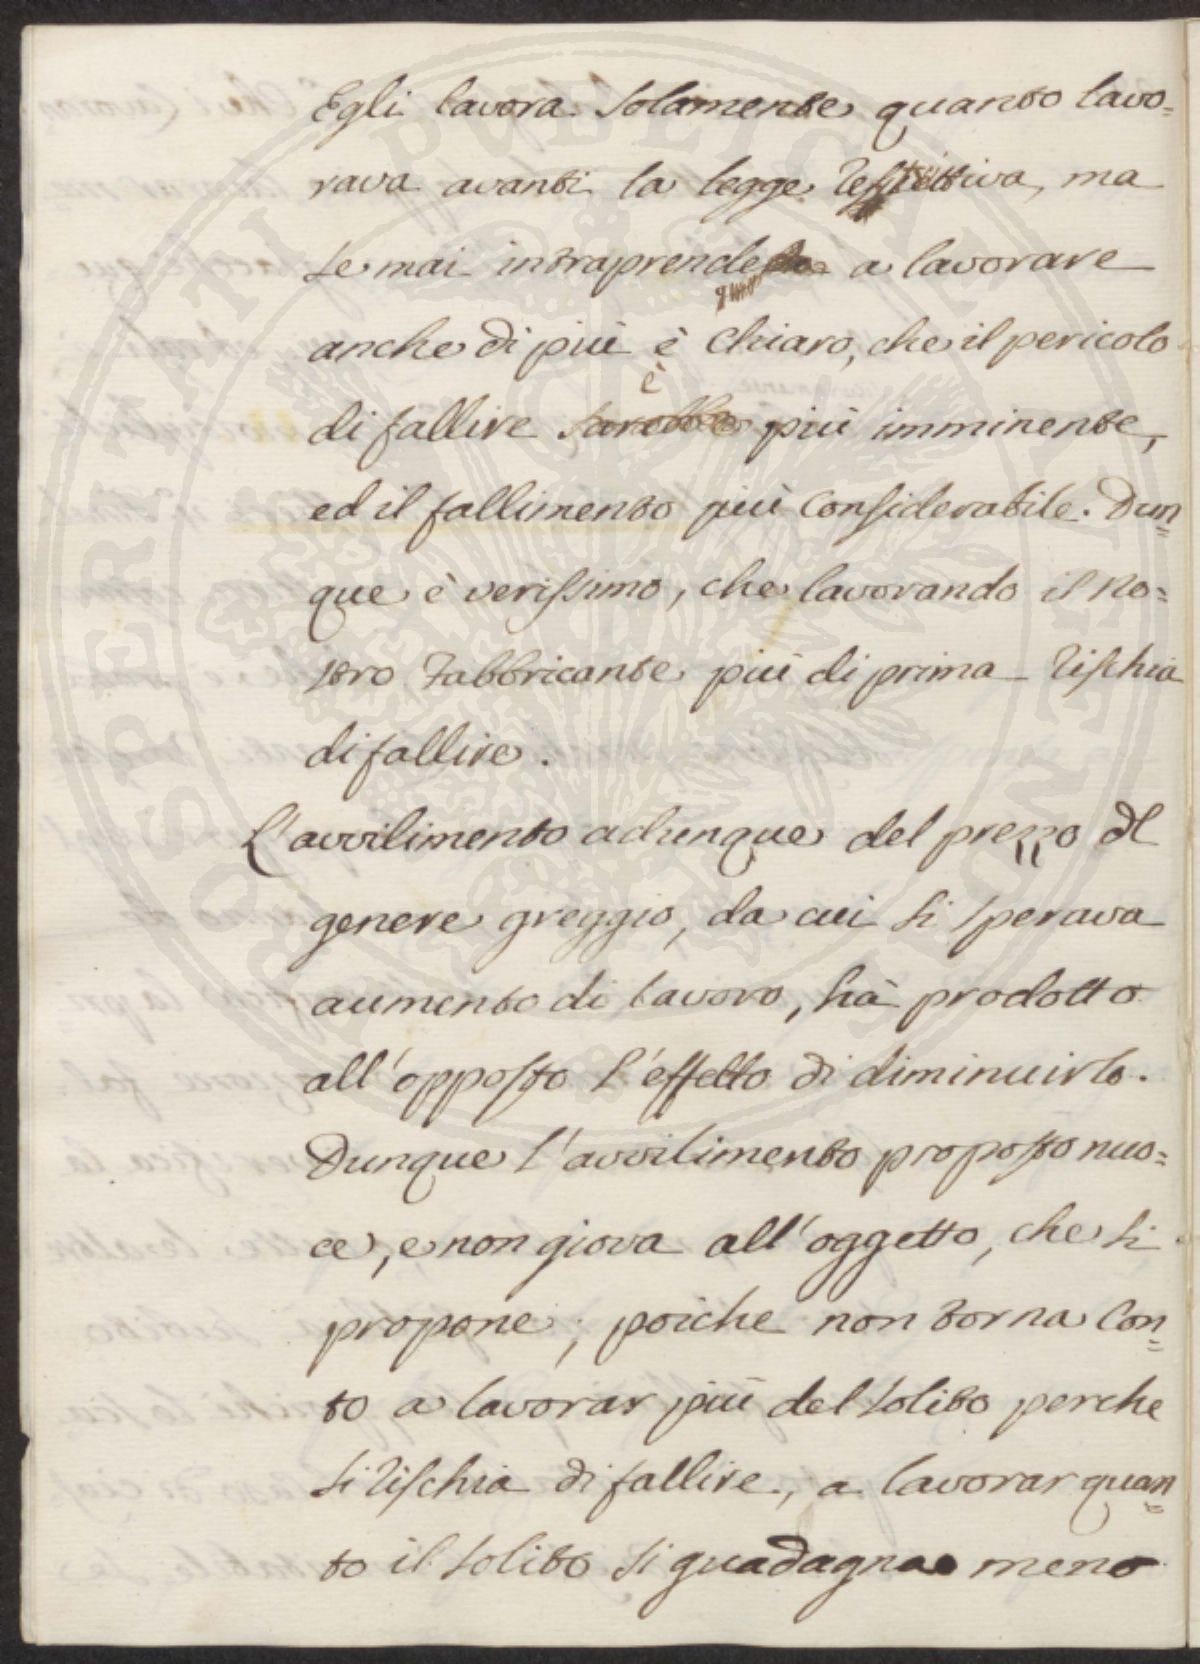 Egli lavora solamente quanto lavo=
rava avanti la legge restrittiva, ma
se mai intraprende a lavorare
anche di più è chiaro, che il pericolo
è
di fallire sarebbe più imminente,
ed il fallimento più considerabile. Dun=
que è verissimo, che lavorando il no=
stro Fabbricante più di prima rischia
di fallire.
L'avvilimento adunque del prezzo del
genere greggio, da cui si sperava
aumento di lavoro, hà prodotto
all'opposto l'effetto di diminuirlo.
Dunque l'avvilimento proposto nuo=
ce, e non giova all'oggetto, che si
propone; poiche non torna con=
to a lavorar più del solito perche
si rischia di fallire, a lavorar quan=
to il solito si guadagna meno
PROSPERITATI PUBLICAE AUGENDAE